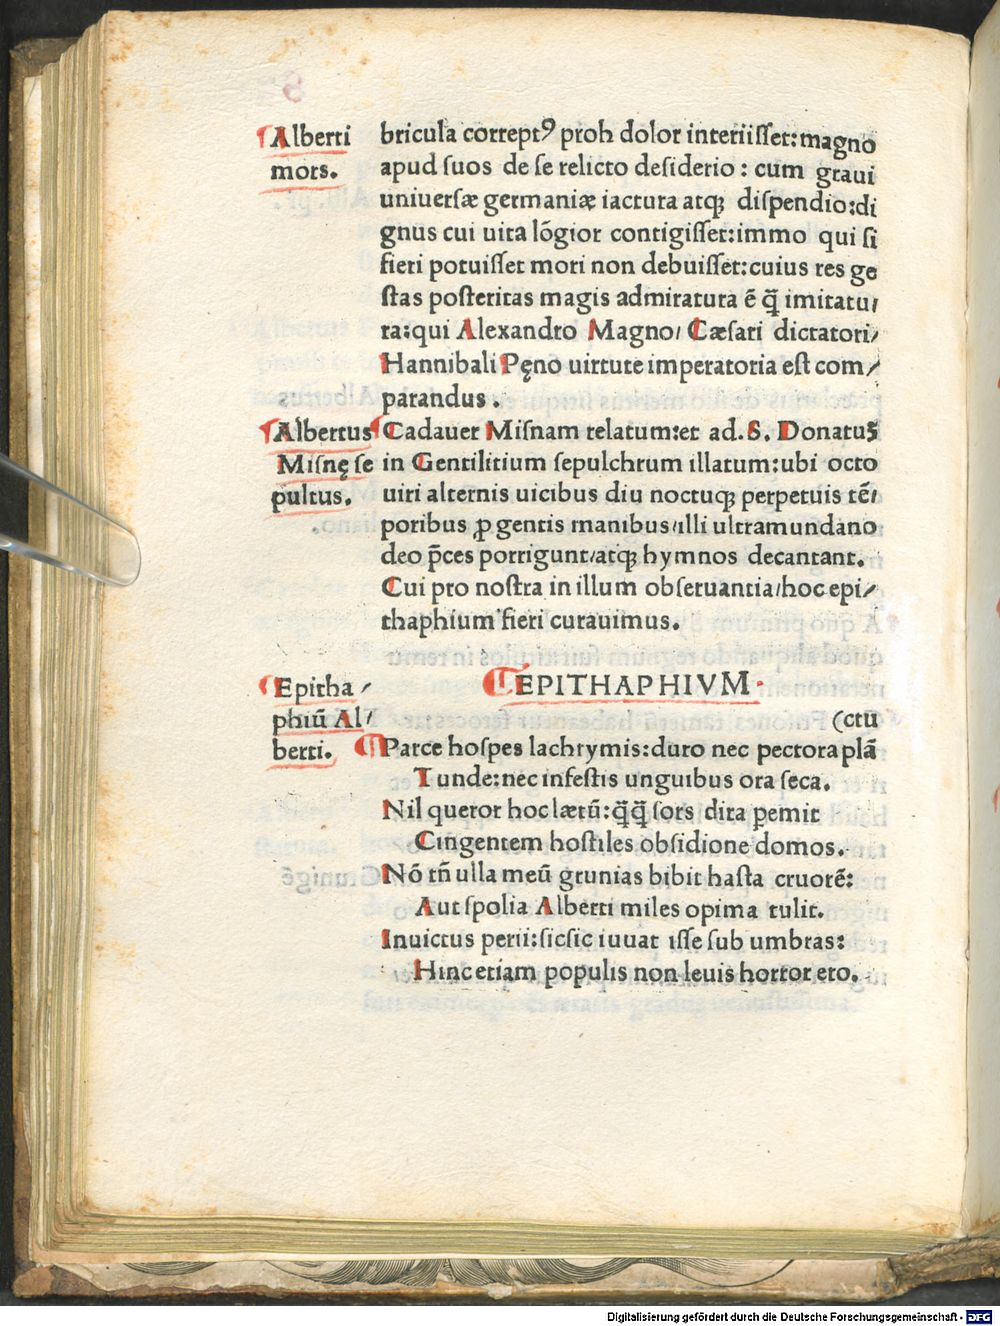 Alberti
mors.
bricula correptꝰ proh dolor interiiſſet:magno
apud ſuos de ſe relicto deſiderio : cum graui
uniuerſæ germaniæ iactura atqꝫ diſpendio:di
gnus cui uita lõgior contigiſſet:immo qui ſi
fieri potuiſſet mori non debuiſſet:cuius res ge
ſtas poſteritas magis admiratura ē q̄ imitatu/
ra:qui Alexandro Magno/ Cæſari dictatori/
Hannibali Pęno uirtute imperatoria eſt com/
parandus .
Albertus
Miſnę ſe
pultus.
Cadauer Miſnam relatum:et ad.S. Donatus
in Gentilitium ſepulchrum illatum:ubi octo
uiri alternis uicibus diu noctuqꝫ perpetuis tē/
poribus ꝓ gentis manibus/illi ultramundano
deo p̄ces porrigunt/atqꝫ hymnos decantant.
Cui pro noſtra in illum obſeruantia/hoc epi/
thaphium fieri curauimus.
Epitha/
phiū Al/
berti.
EPITHAPHIVM.
(ctu
Parce hoſpes lachrymis:duro nec pectora plā
Tunde:nec infeſtis unguibus ora ſeca.
Nil queror hoc lætū:q̄q̄ ſors dira ꝑemit
Cingentem hoſtiles obſidione domos.
Nō tñ ulla meū grunias bibit haſta cruorē:
Aut ſpolia Alberti miles opima tulit.
Inuictus perii:ſicſic iuuat iſſe ſub umbras:
Hinc etiam populis non leuis horror ero.
Digitalisierung gefördert durch die Deutsche Forschungsgemeinschaft - DFG